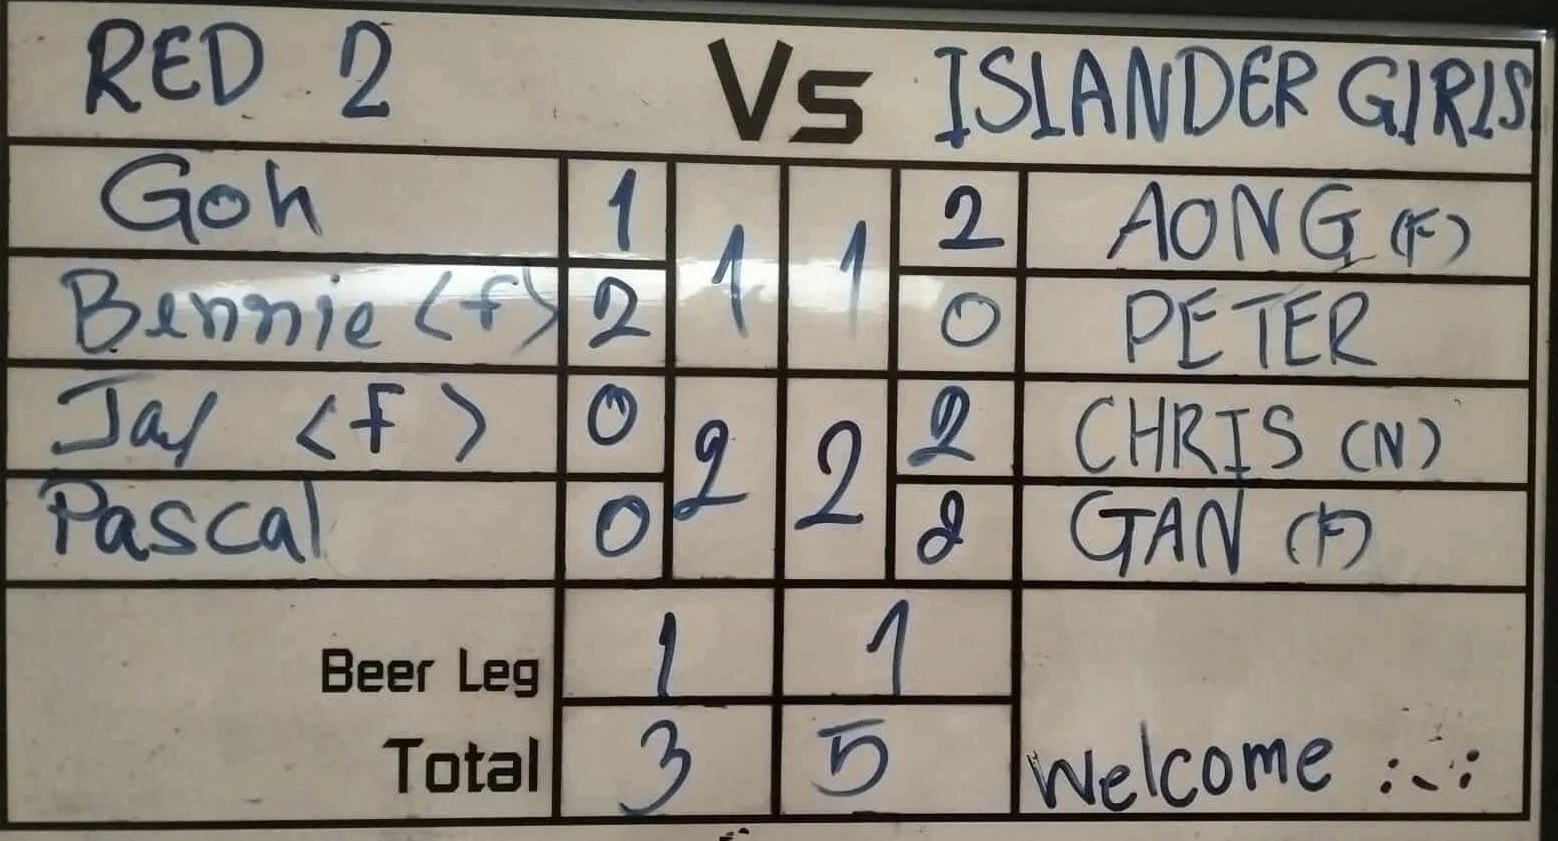 RED 2 Vs ISLANDER GIRLS
Goh 1 1 1 2 AONG (F)
Bennie <f> 2 0 PETER
Jay <F> 0 2 2 2 CHRIS (N)
Pascal 0 2 GAN (F)
Beer Leg 1 1
Total 3 5 Welcome